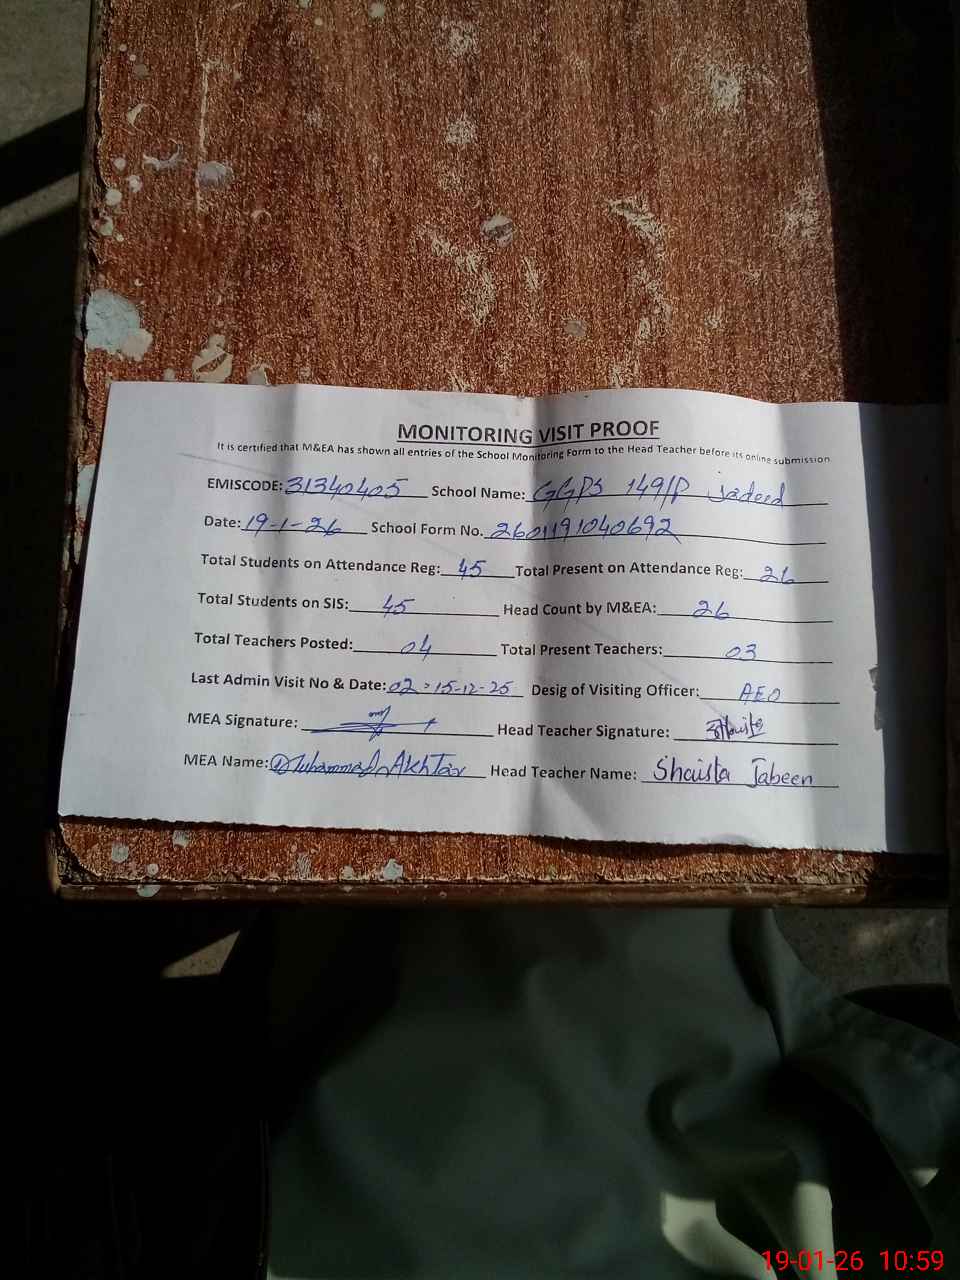 MONITORING VISIT PROOF
It is certified that M&EA has shown all entries of the School Monitoring Form to the Head Teacher before its online submission.
EMISCODE: 31340405 School Name: GGPS 149/P Jadeed
Date: 19-1-26 School Form No. 2601191040692
Total Students on Attendance Reg: 45 Total Present on Attendance Reg: 26
Total Students on SIS: 45 Head Count by M&EA: 26
Total Teachers Posted: 04 Total Present Teachers: 03
Last Admin Visit No & Date: 02 : 15-12-25 Desig of Visiting Officer: AEO
MEA Signature: Head Teacher Signature:
MEA Name: Muhammad Akhtar Head Teacher Name: Shaista Jabeen
19-01-26 10:59